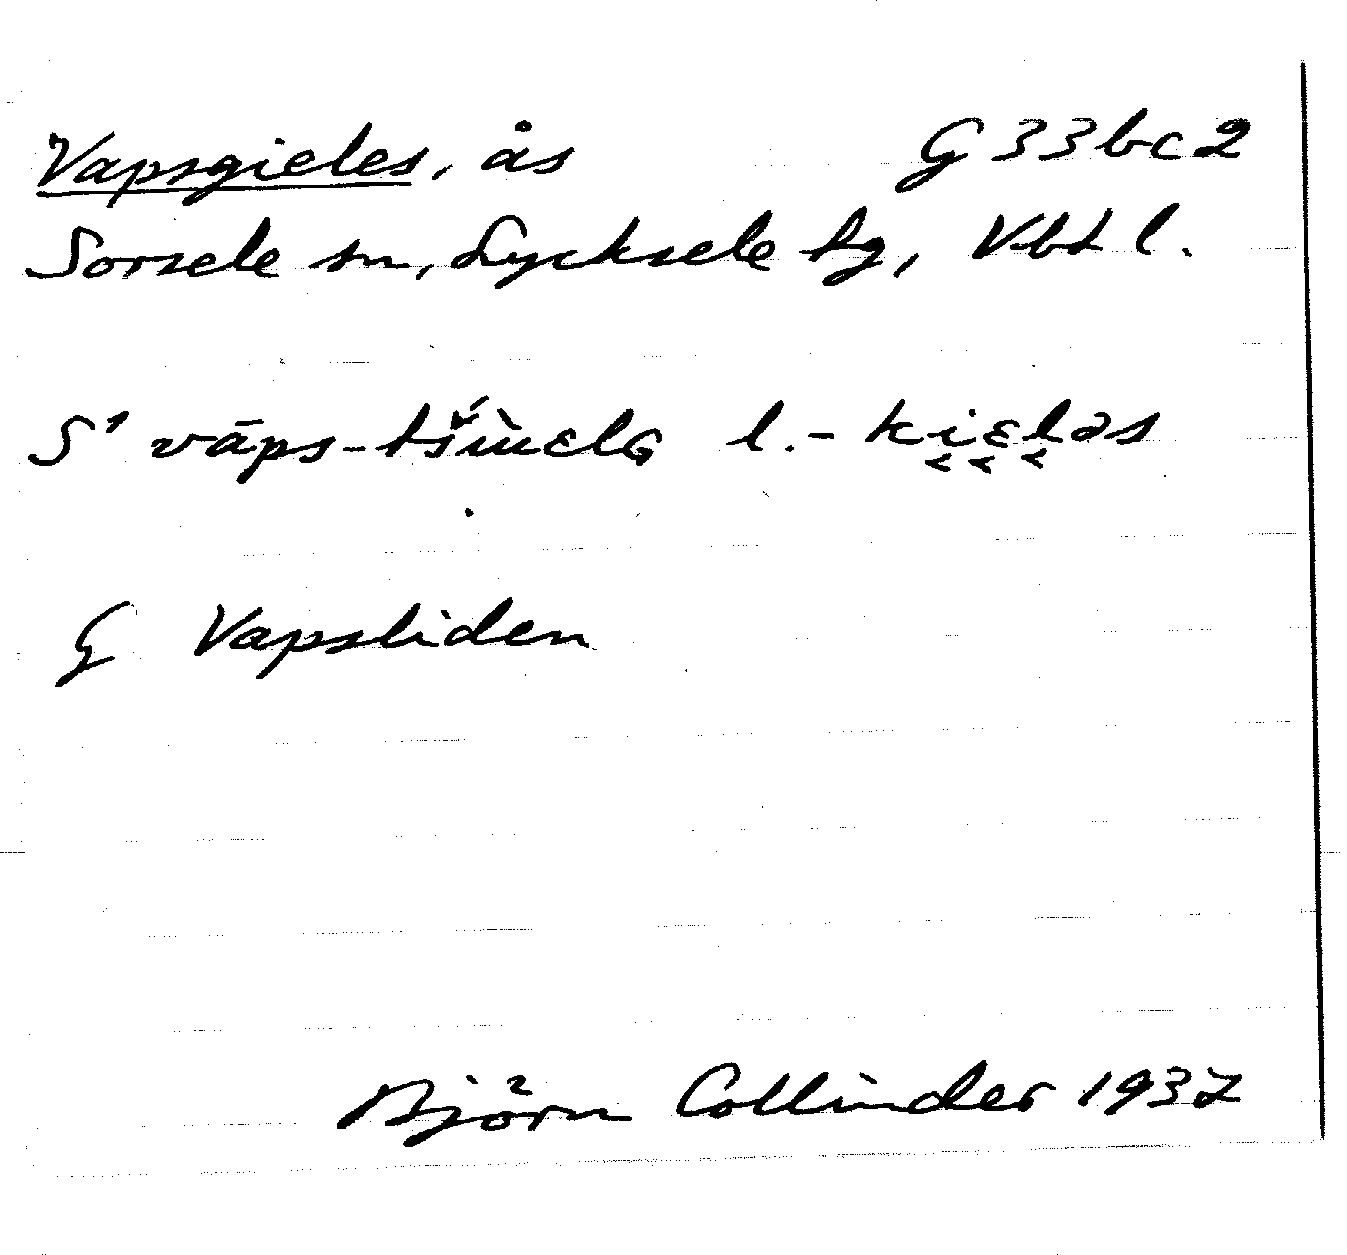 Vapsgieles, ås G33bc2
Sorsele sn, Lycksele tg, Vbt l.
S¹ vāps- l. -kiɛləs
G Vapsliden
Björn Collinder 1937